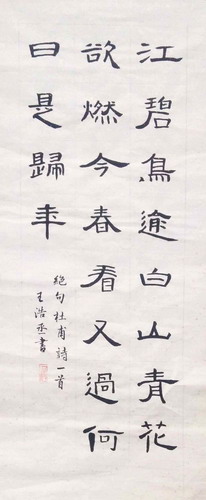 江碧鳥逾白山青花
欲燃今春看又過何
日是歸年
絕句杜甫詩一首
王浩丞書